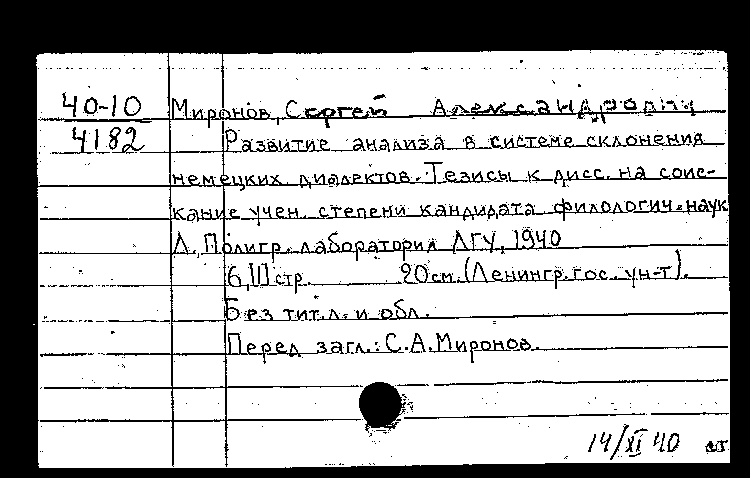 40-10 Миронов, Сергей Александрович
4182 Развитие анализа в системе склонения
немецких диалектов. Тезисы к дисс. на соис-
кание учен. степени кандидата филологич. наук
Л., Полигр. лаборатория ЛГУ, 1940
6,[] стр. 20 см. (Ленингр. гос. ун-т).
Без тит. л. и обл.
Перед загл.: С.А. Миронов.
14/XI 40